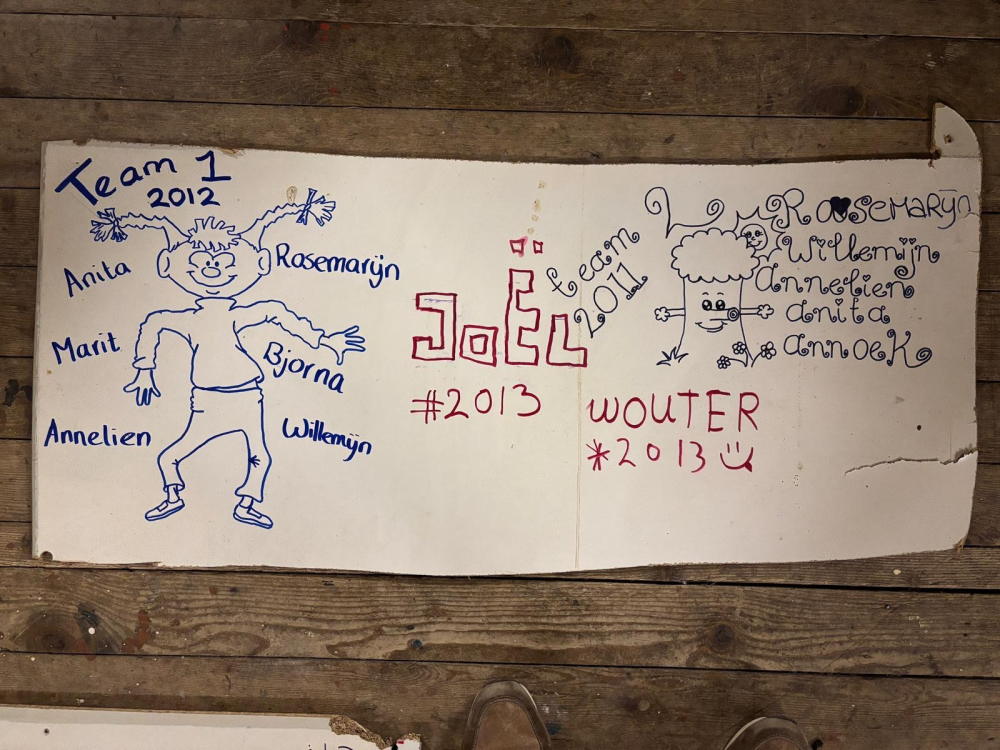 Team 1
2012
Anita
Rosemarijn
Marit
Bjorna
Annelien
Willemijn
JOËL
#2013
team
2011
Rosemarijn
Willemijn
Annelien
anita
annoek
WOUTER
*2013